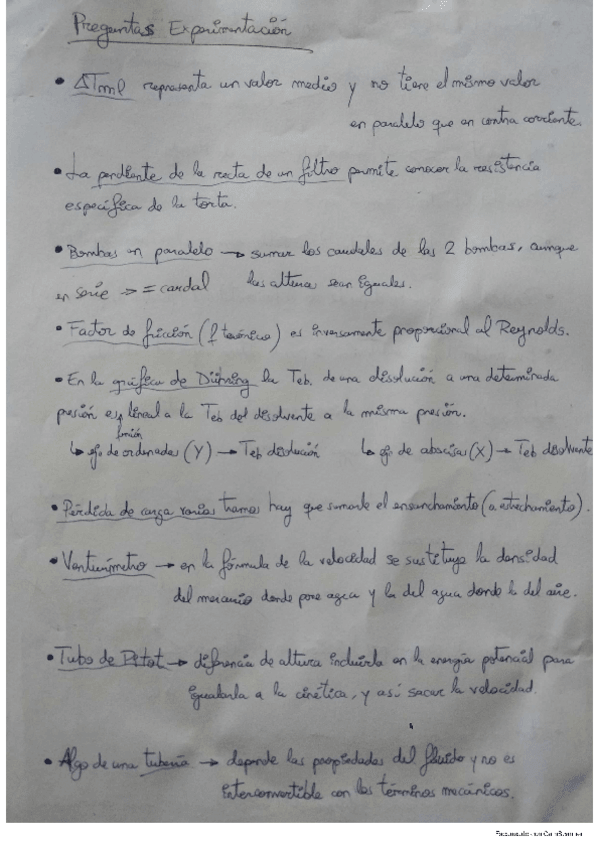 Preguntas Experimentación
• ΔTml representa un valor medio y no tiene el mismo valor
en paralelo que en contra corriente.
• La pendiente de la recta de un filtro permite conocer la resistencia
específica de la torta.
• Bombas en paralelo → sumar los caudales de las 2 bombas, aunque
en serie → = caudal las altura sean iguales.
• Factor de fricción (f teórico) es inversamente proporcional al Reynolds.
• En la gráfica de Dühring la Teb. de una disolución a una determinada
presión es función lineal a la Teb del disolvente a la misma presión.
↳ eje de ordenadas (Y) → Teb disolución ↳ eje de abscisas (X) → Teb disolvente
• Pérdida de carga varios tramos hay que sumarle el ensanchamiento (o estrechamiento).
• Venturímetro → en la fórmula de la velocidad se sustituye la densidad
del mercurio donde pone agua y la del agua donde la del aire.
• Tubo de Pitot → diferencia de altura incluirla en la energía potencial para
igualarla a la cinética, y así sacar la velocidad.
• Algo de una tubería → depende las propiedades del fluido y no es
interconvertible con los términos mecánicos.